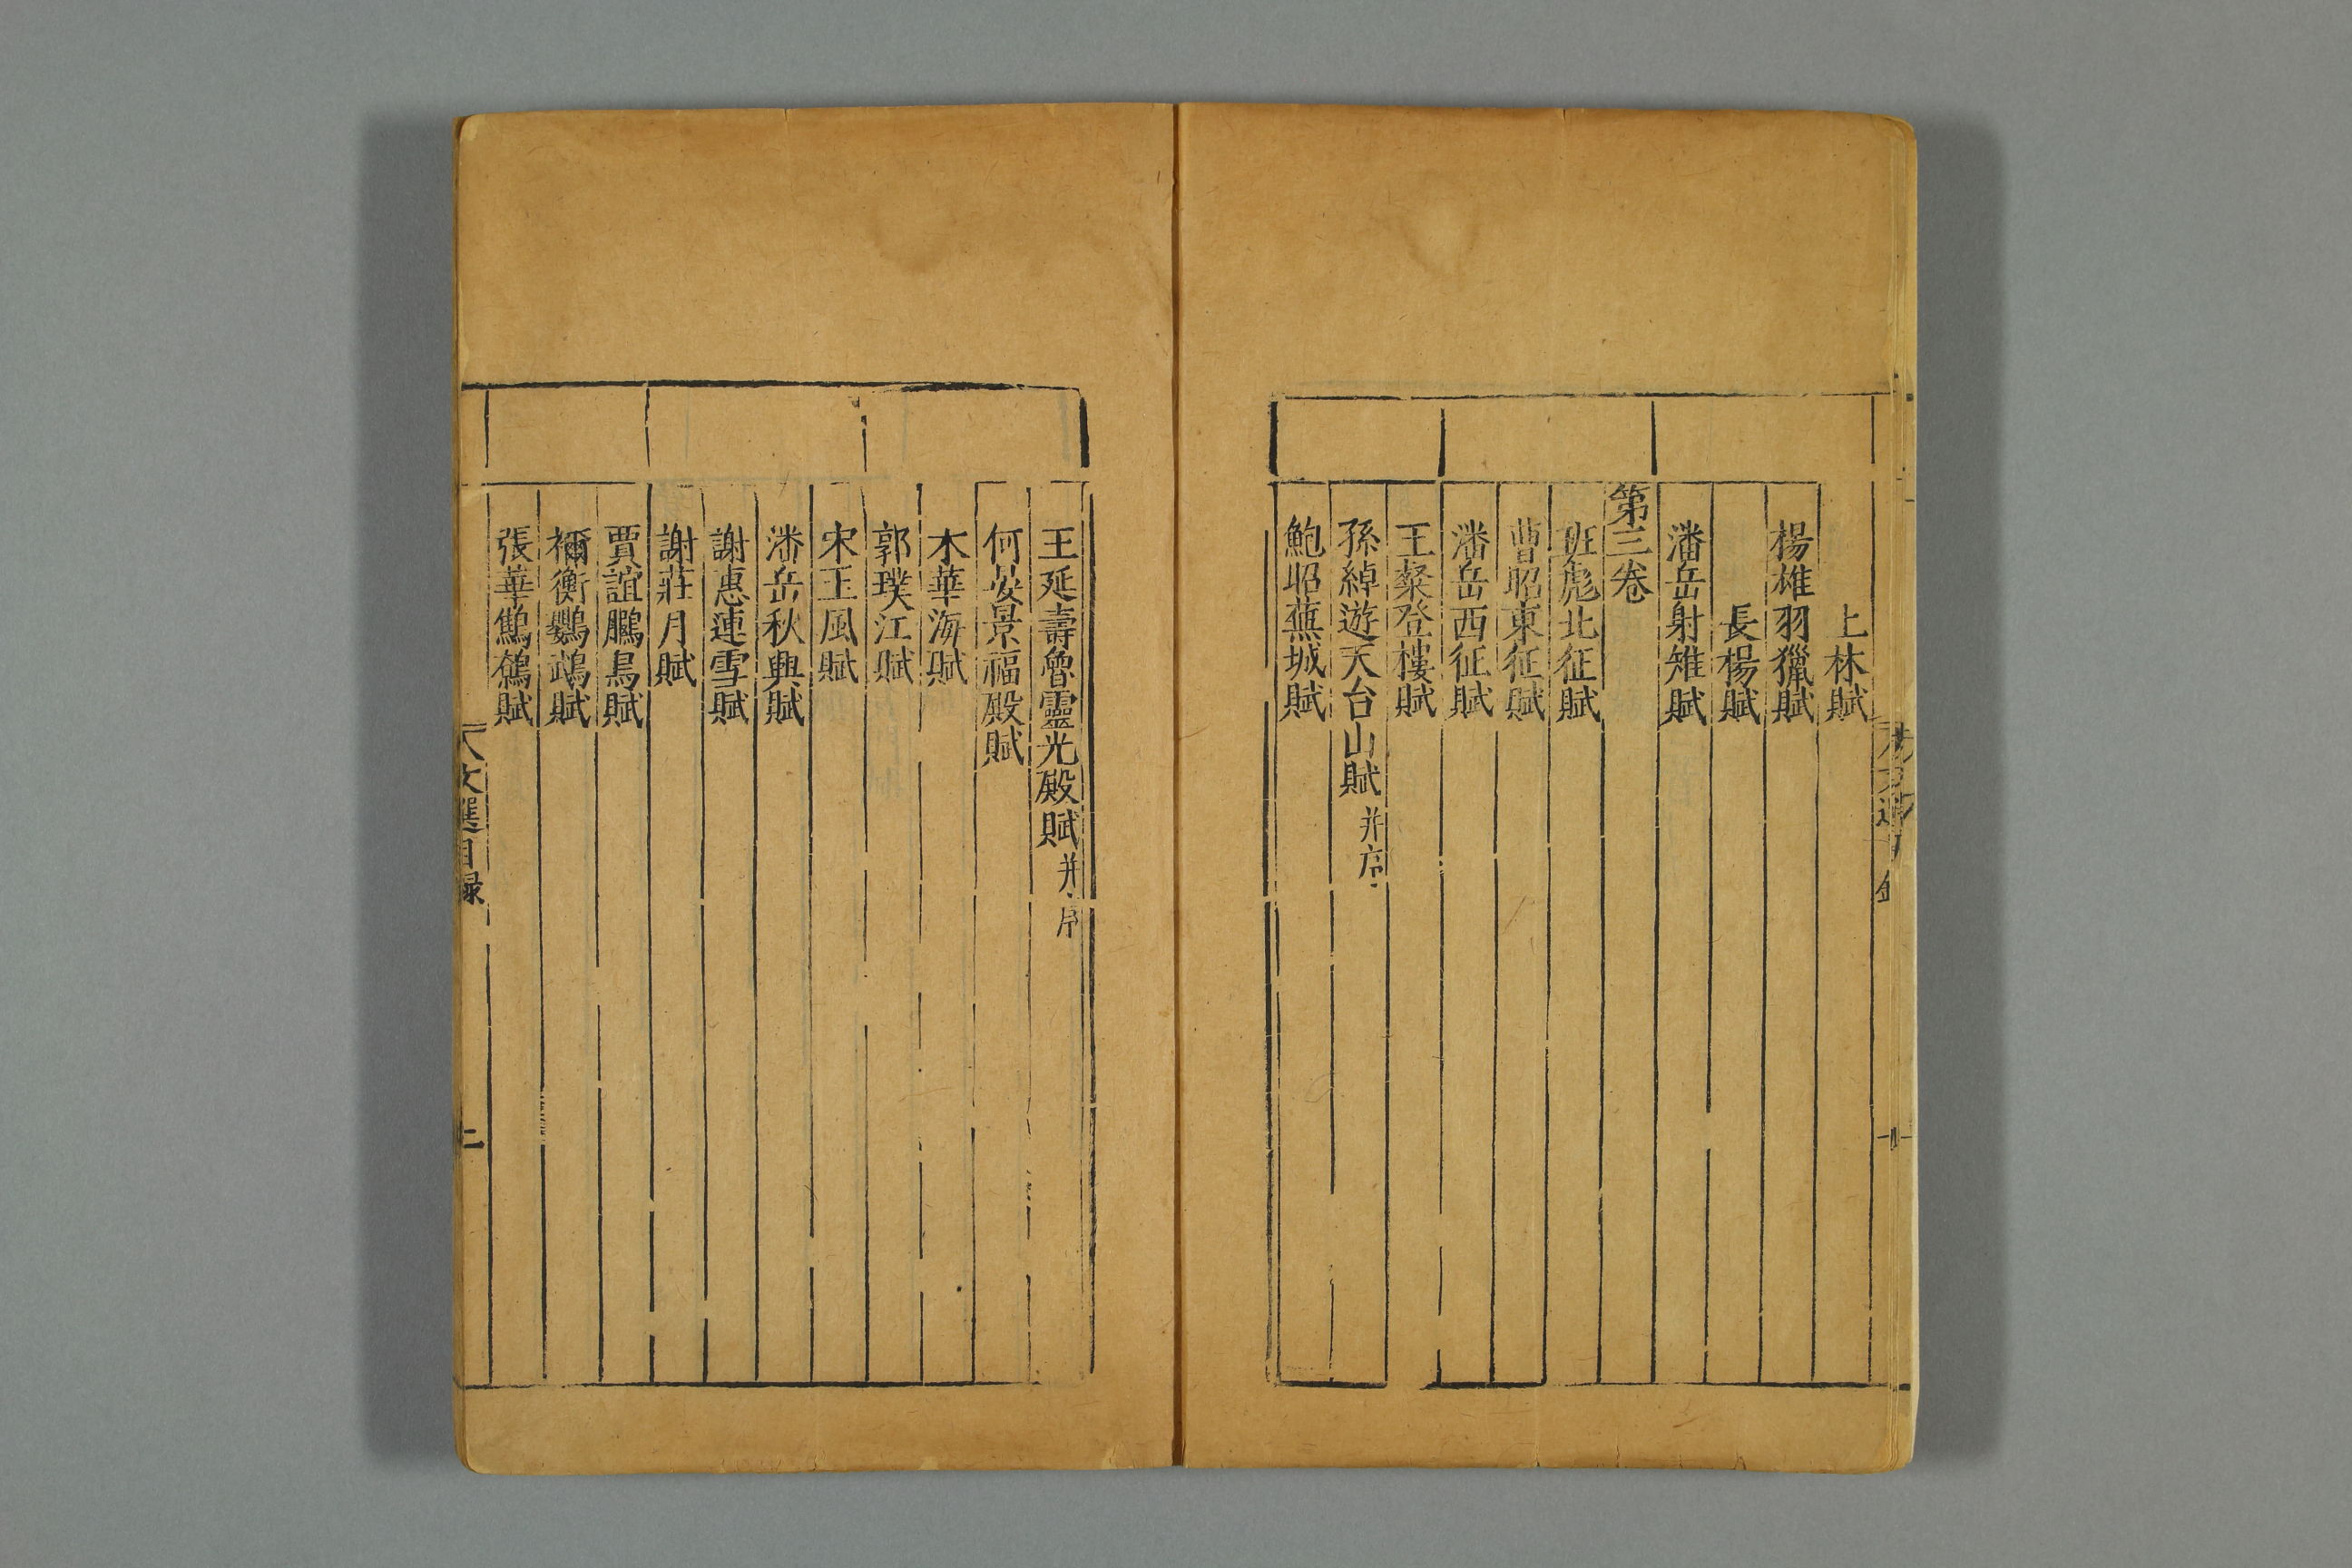 上林賦
楊雄羽獵賦
長楊賦
潘岳射雉賦
第三卷
班彪北征賦
曹昭東征賦
潘岳西征賦
王粲登樓賦
孫綽遊天台山賦 并序
鮑昭蕪城賦
王延壽魯靈光殿賦 并序
何晏景福殿賦
木華海賦
郭璞江賦
宋玉風賦
潘岳秋興賦
謝惠連雪賦
謝莊月賦
賈誼鵩鳥賦
禰衡鸚鵡賦
張華鷦鷯賦
文選目録
二